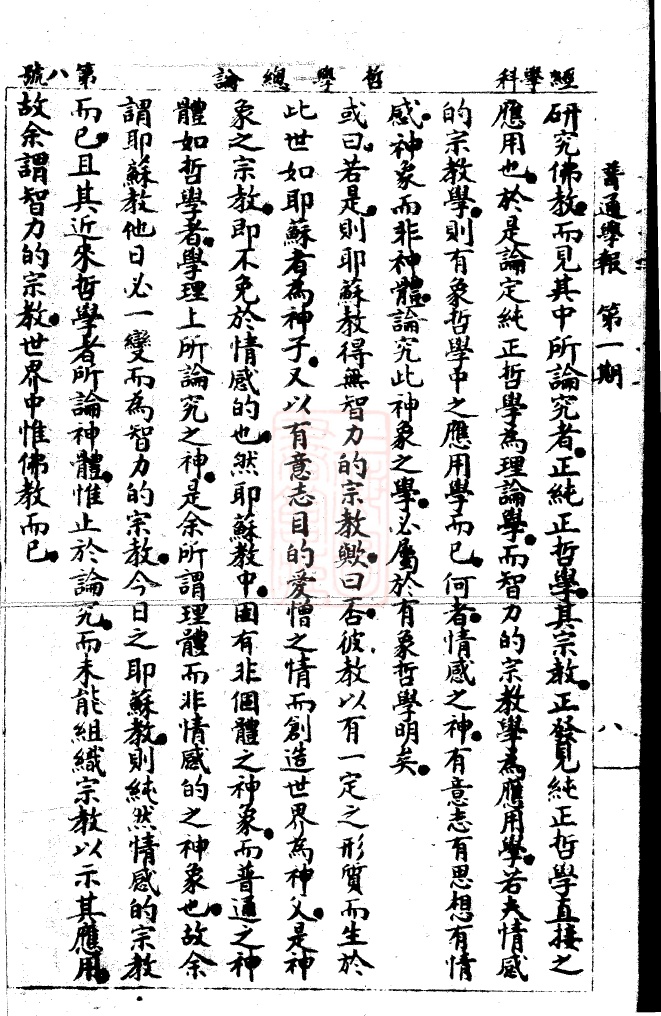 經學科
哲學總論
第八號
普通學報　第一期
八
研究佛教。而見其中所論究者。正純正哲學。其宗教。正發見純正哲學直接之
應用也。於是論定純正哲學為理論學。而智力的宗教學為應用學。若夫情感
的宗教學。則有象哲學中之應用學而已。何者。情感之神。有意志有思想有情
感。神象而非神體。論究此神象之學。必屬於有象哲學明矣。
或曰。若是。則耶蘇教得無智力的宗教歟。曰。否。彼教以有一定之形質而生於
此世如耶蘇者為神子。又以有意志目的愛憎之情而創造世界為神父。是神
象之宗教。即不免於情感的也。然耶蘇教中。固有非個體之神象。而普通之神
體如哲學者。學理上所論究之神。是余所謂理體而非情感的之神象也。故余
謂耶蘇教他日必一變而為智力的宗教。今日之耶蘇教。則純然情感的宗教
而已。且其近來哲學者所論神體。惟止於論究。而未能組織宗教以示其應用。
故余謂智力的宗教。世界中惟佛教而已。